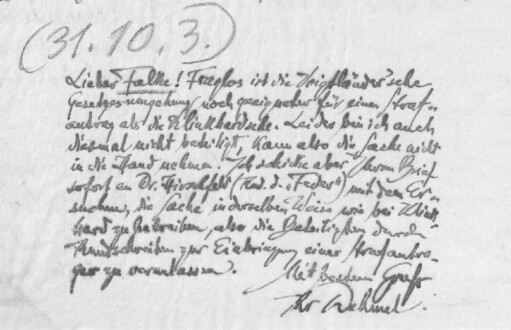 (31.10.3.)
Lieber Falke! Fraglos ist die Voigtländer'sche
Gesetzesumgehung noch geeigneter für einen Straf-
antrag als die Klinkhardtsche. Leider bin ich auch
diesmal nicht beteiligt, kann also die Sache nicht
in die Hand nehmen. Ich schicke aber Ihren Brief
sofort an Dr. Hirschfeld (Red. d. „Feder“) mit dem Er-
suchen, die Sache in derselben Weise wie bei Klink-
hard zu betreiben, also die Beteiligten durch
Rundschreiben zur Einbringung einer Strafantra-
ges zu veranlassen.
Mit bestem Gruß
Ihr Dehmel.